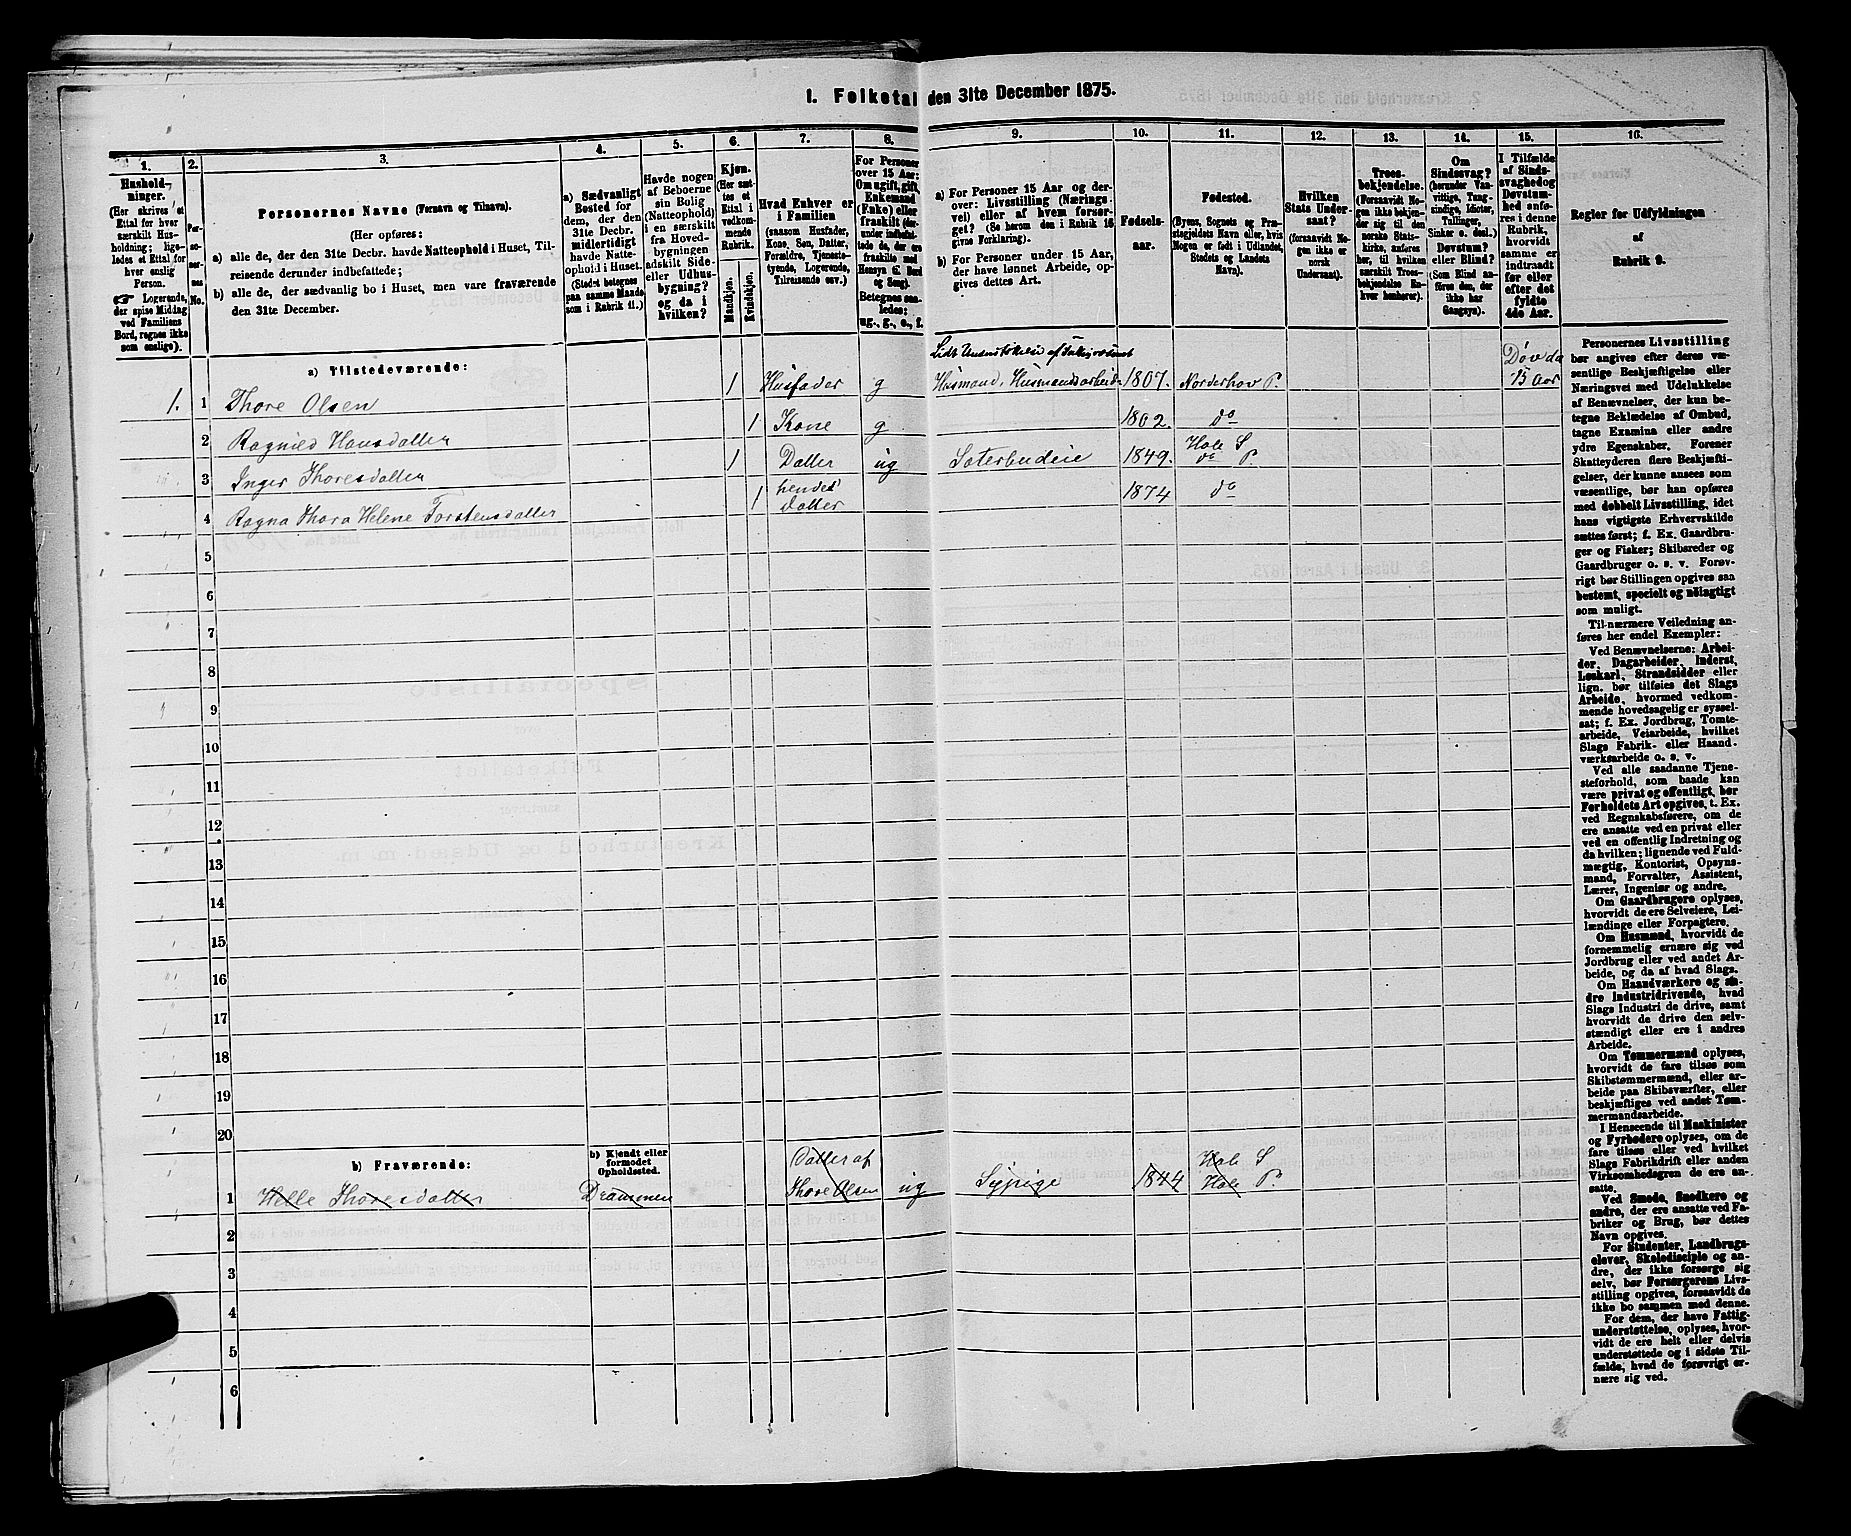 1. Folketal den 31te December 1875.
1.
Hushold-
ninger.
(Her skrives et
Ettal for hver
særskilt Hus-
holdning; lige-
ledes et Ettal for
hver enslig
Person.
☛ Logerende,
der spise Middag
ved Familiens
Bord, regnes ikke
som enslige).
2.
Per-
so-
ner-
nes
No.
3.
Personernes Navne (Fornavn og Tilnavn).
(Her opføres:
a) alle de, der den 31te Decbr. havde Natteophold i Huset, Til-
reisende derunder indbefattede;
b) alle de, der sædvanlig bo i Huset, men vare fraværende
den 31te December.
4.
a) Sædvanligt
Bosted for
dem, der den
31te Decbr.
midlertidigt
havde Natte-
ophold i Huset.
(Stedet betegnes
paa samme Maade
som i Rubrik 11.)
5.
Havde nogen
af Beboerne
sin Bolig
(Natteophold)
i en særskilt
fra Hoved-
bygningen
adskilt Side-
eller Udhus-
bygning?
og da i
hvilken?
6.
Kjøn.
(Her sæt-
tes et
Ettal i
vedkom-
mende
Rubrik.
Mandkjøn.
Kvindekjøn.
7.
Hvad Enhver er
i Familien
(saasom Husfader,
Kone, Søn, Datter,
Forældre, Tjeneste-
tyende, Logerende,
Tilreisende osv.)
8.
For Personer
over 15 Aar:
Om ugift, gift,
Enkemand
(Enke) eller
fraskilt (der-
under indbefat-
tede de, der ere
fraskilte med
Hensyn til Bord
og Seng).
Betegnes saa-
ledes:
ug., g., e., f.
9.
a) For Personer 15 Aar og der-
over: Livsstilling (Nærings-
vei) eller af hvem forsør-
get? (Se herom den i Rubrik 16
givne Forklaring).
b) For Personer under 15 Aar,
der have lønnet Arbeide, op-
gives dettes Art.
10.
Fødsels-
aar.
11.
Fødested.
(Byens, Sognets og Præ-
stegjeldets Navn eller, hvis
Nogen er født i Udlandet,
Stedets og Landets
Navn).
12.
Hvilken
Stats Under-
saat?
(forsaavidt No-
gen ikke er
norsk
Undersaat).
13.
Troes-
bekjendelse.
(Forsaavidt No-
gen ikke bekjen-
der sig til den
norske Stats-
kirke, anføres
her, til hvilken
særskilt Troes-
bekjendelse En-
hver henhører).
14.
Om
Sindssvag?
(herunder Van-
vittige, Tung-
sindige, Idioter,
Tullinger,
Sinker o. desl.)
Døvstum?
eller Blind?
(Som Blind an-
føres den, der
ikke har
Gangsyn).
15.
I Tilfælde
af Sinds-
svaghed og
Døvstum-
hed anfø-
res i denne
Rubrik,
hvorvidt
samme er
indtraadt
før eller
efter det
fyldte
4de Aar.
16.
Regler for Udfyldningen
af
Rubrik 9.
a) Tilstedeværende:
Lidt Understøttelse af Fattigvæsenet
1. 1 Thore Olsen 1 Husfader g Husmand, Husmandsarbeide 1807. Norderhov P. Døv da 15 Aar
2 Ragnild Hansdatter 1 Kone g 1802. do
3 Inger Thoresdatter 1 Datter ug Sæterbudeie 1849. Hole S. do P.
4 Ragna Thora Helene Torstensdatter 1 hendes Datter 1874 do
5
6
7
8
9
10
11
12
13
14
15
16
17
18
19
20
b) Fraværende:
b) Kjendt eller
formodet
Opholdssted.
1 Helle Thoresdatter Drammen Datter af Thore Olsen ug Sypige 1844 Hole S. Hole P.
2
3
4
5
6
Personernes Livsstilling
bør angives efter deres væ-
sentlige Beskjæftigelse eller
Næringsvei med Udelukkelse
af Benævnelser, der kun be-
tegne Beklædelse af Ombud,
tagne Examina eller andre
ydre Egenskaber. Forener
Skatteyderen flere Beskjæfti-
gelser, der kunne ansees som
væsentlige, bør han opføres
med dobbelt Livsstilling, idet
hans vigtigste Erhvervskilde
sættes først; f. Ex. Gaardbru-
ger og Fisker; Skibsreder og
Gaardbruger o. s. v. Forøv-
rigt bør Stillingen opgives saa
bestemt, specielt og nøiagtigt
som muligt.
Til nærmere Veiledning an-
føres her endel Exempler:
Ved Benævnelserne: Arbei-
der, Dagarbeider, Inderst,
Løskarl, Strandsidder eller
lign. bør tilføies det Slags
Arbeide, hvormed vedkom-
mende hovedsagelig er syssel-
sat; f. Ex. Jordbrug, Tomte-
arbeide, Veiarbeide, hvilket
Slags Fabrik- eller Haand-
værksarbeide o. s. v.
Ved alle saadanne Tjene-
steforhold, som baade kan
være privat og offentligt, bør
Forholdets Art opgives, t. Ex.
ved Regnskabsførere, om de
ere ansatte ved en privat eller
ved en offentlig Indretning og
da hvilken; lignende ved Fuld-
mægtig, Kontorist, Opsyns-
mand, Forvalter, Assistent,
Lærer, Ingeniør og andre.
Om Gaardbrugere oplyses,
hvorvidt de ere Selveiere, Lei-
lændinge eller Forpagtere.
Om Husmænd, hvorvidt de
fornemmelig ernære sig ved
Jordbrug eller ved andet Ar-
beide, og da af hvad Slags.
Om Haandværkere og an-
dre Industridrivende, hvad
Slags Industri de drive, samt
hvorvidt de drive den selv-
stændigt eller ere i andres
Arbeide.
Om Tømmermænd oplyses,
hvorvidt de fare tilsøs som
Skibstømmermænd, eller ar-
beide paa Skibsværfter, eller
beskjæftiges ved andet Tøm-
mermandsarbeide.
I Henseende til Maskinister
og Fyrbødere oplyses, om de
fare tilsøs eller ved hvilket
Slags Fabrikdrift eller anden
Virksomhedsgren de ere an-
satte.
Ved Smede, Snedkere og
andre, der ere ansatte ved Fa-
briker og Brug, bør dettes
Navn opgives.
For Studenter, Landbrugs-
elever, Skoledisciple og an-
dre, der ikke forsørge sig
selv, bør Forsørgerens Livs-
stilling opgives, forsaavidt de
ikke bo sammen med denne.
For dem, der have Fattig-
understøttelse, oplyses, hvor-
vidt de ere helt eller delvis
understøttede og i sidste Til-
fælde, hvad de forøvrigt er-
nære sig ved.